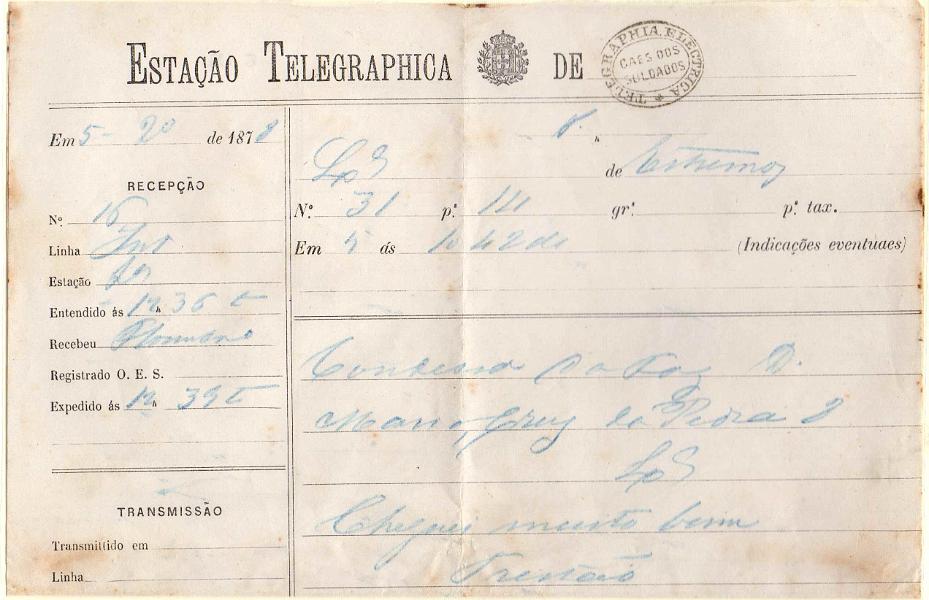 ESTAÇÃO TELEGRAPHICA DE
TELEGRAPHIA ELECTRICA
CAES DOS SOLDADOS
Em 5 - de 1878
RECEPÇÃO
Nº 16
Linha
Estação
Entendido ás 12 h 36 t
Recebeu
Registrado O. E. S.
Expedido ás 12 h 39 t
TRANSMISSÃO
Transmittido em
Linha
Lx
de Estremoz
Nº 31 pª 14 grª pª tax.
Em 5 ás 10 42 (Indicações eventuaes)
Condessa D.
Maria Cruz da Pedra 8
Lx
Cheguei muito bem
Tristão